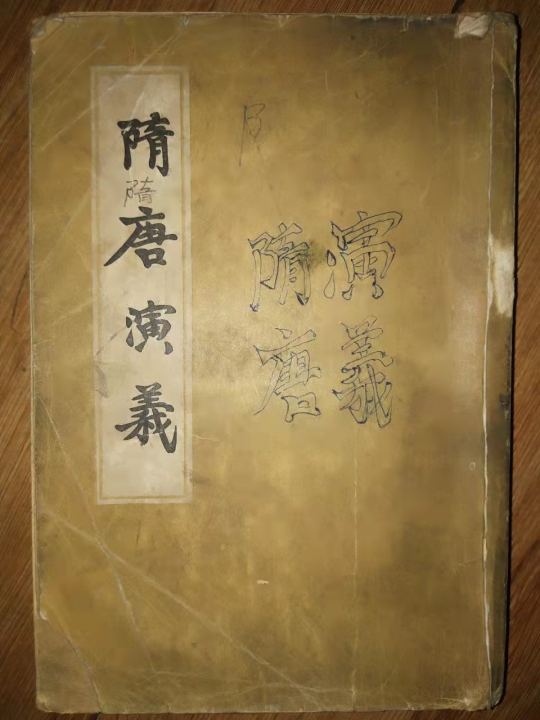 隋唐演義
隋
隋唐
演義